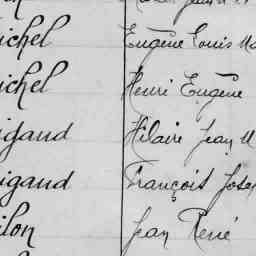 ichel Eugène Louis Ma
ichel Henri Eugène
igaud Hilaire Jean M
igaud François Jose
ilon Jean René